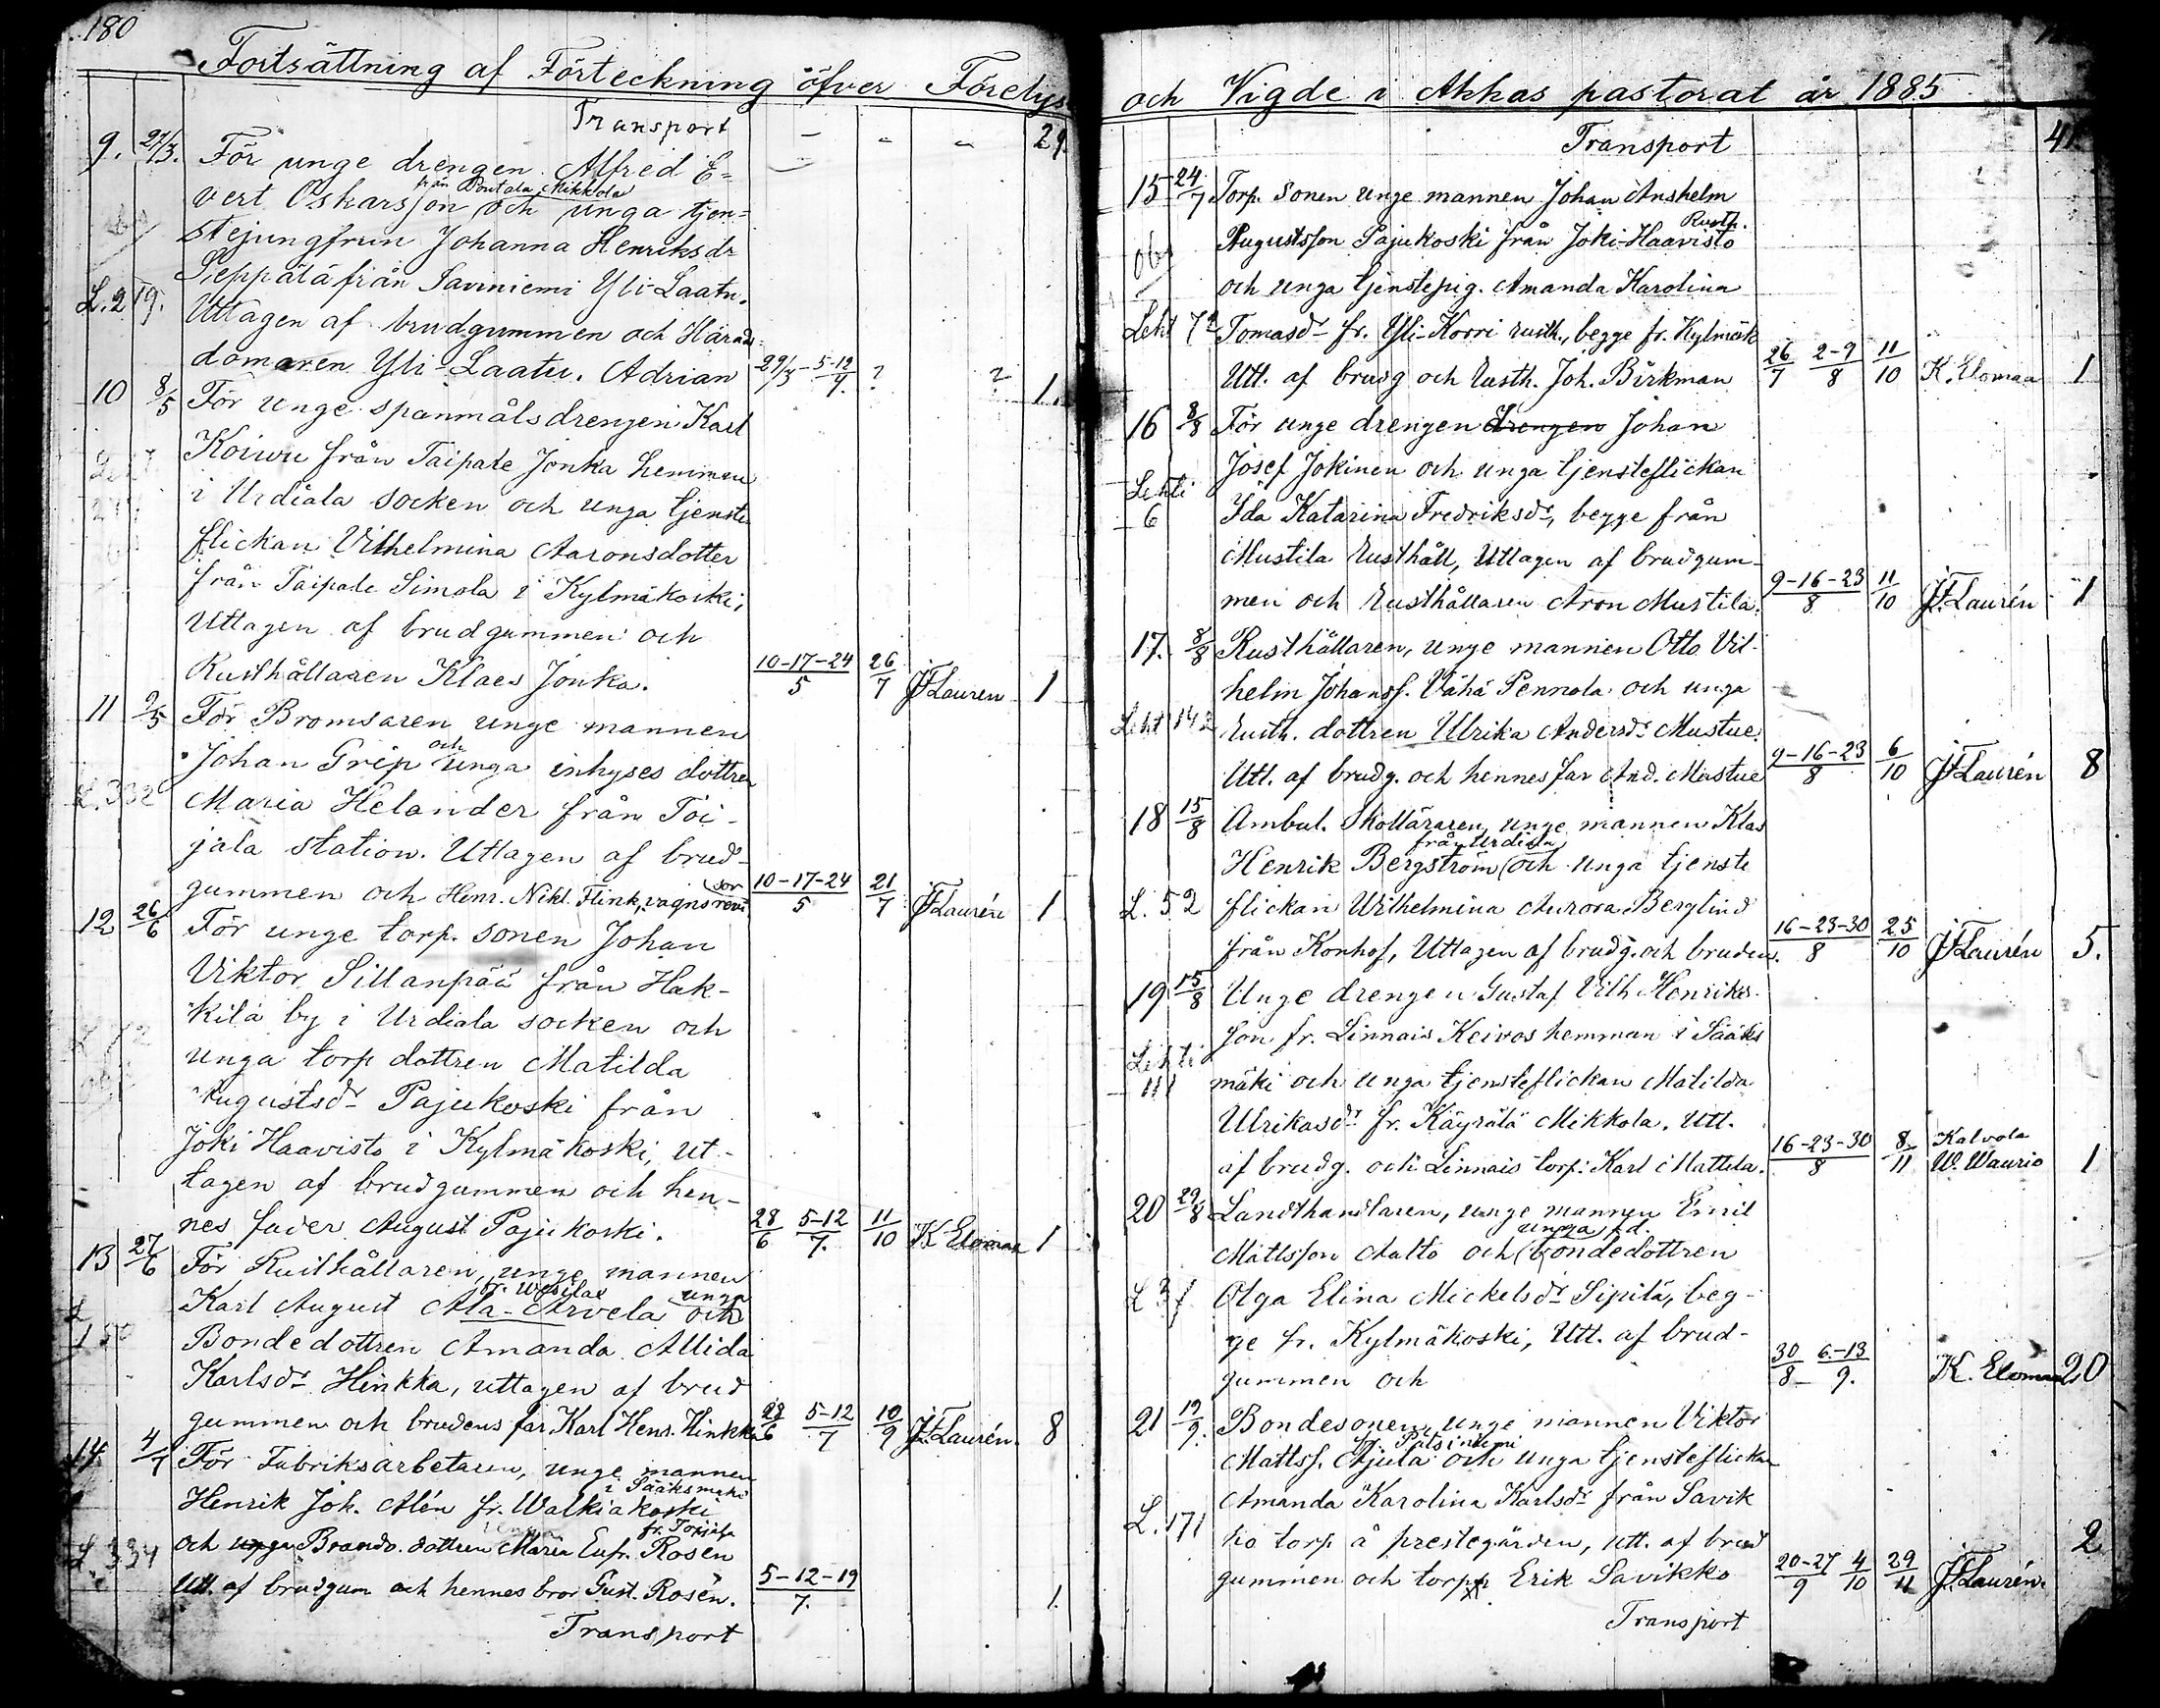 180
Fortsättning af Förteckning öfver Förelys
Transport - - - 29
9. 27/3. För unge drengen Alfred E=
från Pontala Mikkola
vert Oskarsson och unga tjen=
stejungfrun Johanna Henriksdr
Seppälä från Saviniemi Yli-Laatu.
L. 219. Uttagen af brudgummen och Härads=
domaren Yli-Laatu. Adrian 29/3 - 5-12/4. ? ? 1.
10 8/5 För unge spanmålsdrengen Karl
Koivu från Taipale Jonka hemman
i Urdiala socken och unga tjenste
flickan Vilhelmina Aaronsdotter
från Taipale Simola i Kylmäkoski;
Uttagen af brudgummen och
Rusthållaren Klaes Jonka. 10-17-24/5 26/7 JFLaurén 1
11 9/5 För Bromsaren unge mannen
och
Johan Grip unga inhyses dottren
L. 332 Maria Helander från Toi-
jala station. Uttagen af brud-
sor
gummen och Henr. Nikl. Flink, vagnsrevi 10-17-24/5 21/7 JFLaurén 1
12 26/6 För unge torp. sonen Johan
Viktor Sillanpää från Hak-
kila by i Urdiala socken och
unga torp dottren Matilda
Augustsdr Pajukoski från
Joki Haavisto i Kylmäkoski, ut-
tagen af brudgummen och hen-
nes fader August Pajukoski. 28/6 5-12/7. 11/10 K Elomaa 1
13 27/6 För Rusthållaren, unge mannen
fr. Wesilax unga
L Karl August Ala-Arvela och
150 Bondedottren Amanda Allida
Karlsdr Hinkka, uttagen af brud
gummen och brudens far Karl Henr. Hinkka 28/6 5-12/7 10/9 JFLaurén. 8
14 4/7 För Fabriksarbetaren, unge mannen
i Sääksmäki
Henrik Joh. Alén fr. Walkiakoski
fr. Toijala
L. 334 och unga Brando. dottren Maria Eufr. Rosén
Utt. af brudgum och hennes bror Gust. Rosén. 5-12-19/7. 1.
Transport
och Vigde i Akkas pastorat år 1885
Transport 41.
15 24/7 Torp. sonen unge mannen Johan Anshelm
Rusth.
obs Augustsson Pajukoski från Joki-Haavisto
och unga tjenstepig. Amanda Karolina
Leht 72 Tomasdr fr. Yli-Korri rusth., begge fr. Kylmäk
Utt. af brudg och rusth. Joh. Birkman 26/7 2-9/8 11/10 K. Elomaa 1
16 8/8 För unge drengen drengen Johan
Josef Jokinen och unga tjensteflickan
Lehti
6 Ida Katarina Fredriksdr, begge från
Mustila rusthåll, Uttagen af brudgum-
men och rusthållaren Aron Mustila. 9-16-23/8 11/10 JFLaurén 1
17. 8/8 Rusthållaren, unge mannen Otto Vil-
helm Johanss. Vähä Pennola och unga
Leht 142 rusth. dottren Ulrika Andersdr Mustue.
Utt. af brudg. och hennes far And. Mustue 9-16-23/8 6/10 JFLaurén 8
18 15/8 Ambul. Skolläraren, unge mannen Klas
från Urdiala
Henrik Bergström och unga tjenste
L. 52 flickan Wilhelmina Aurora Berglind
från Konhof, Uttagen af brudg. och bruden. 16-23-30/8 25/10 JFLaurén 5.
19 15/8 Unge drengen Gustaf Vilh Henriks-
son fr. Linnais Keivos hemman i Sääks
Lehti
111 mäki och unga tjensteflickan Matilda
Ulrikasdr fr. Käyrälä Mikkola. Utt.
Kalvola
af brudg. och Linnais torp. Karl Mattila. 16-23-30/8 8/11 W. Waurio 1
20 29/8 Landthandlaren, unge mannen Emil
unga fd.
Mattsson Aalto och bondedottren
L 31 Olga Elina Mickelsdr Sipilä, beg-
ge fr. Kylmäkoski, Utt. af brud-
gummen och 30/8 6.-13/9. K. Elomaa 20
21 19/9. Bondesonen, unge mannen Viktor
fr. Pätsiniemi
Mattss. Ajula och unga tjensteflickan
Amanda Karolina Karlsdr från Savik
L. 171 ko torp å prestegården, utt. af brud 2
gummen och torpp Erik Savikko 20-27/9 4/10 29/11 JFLaurén.
Transport